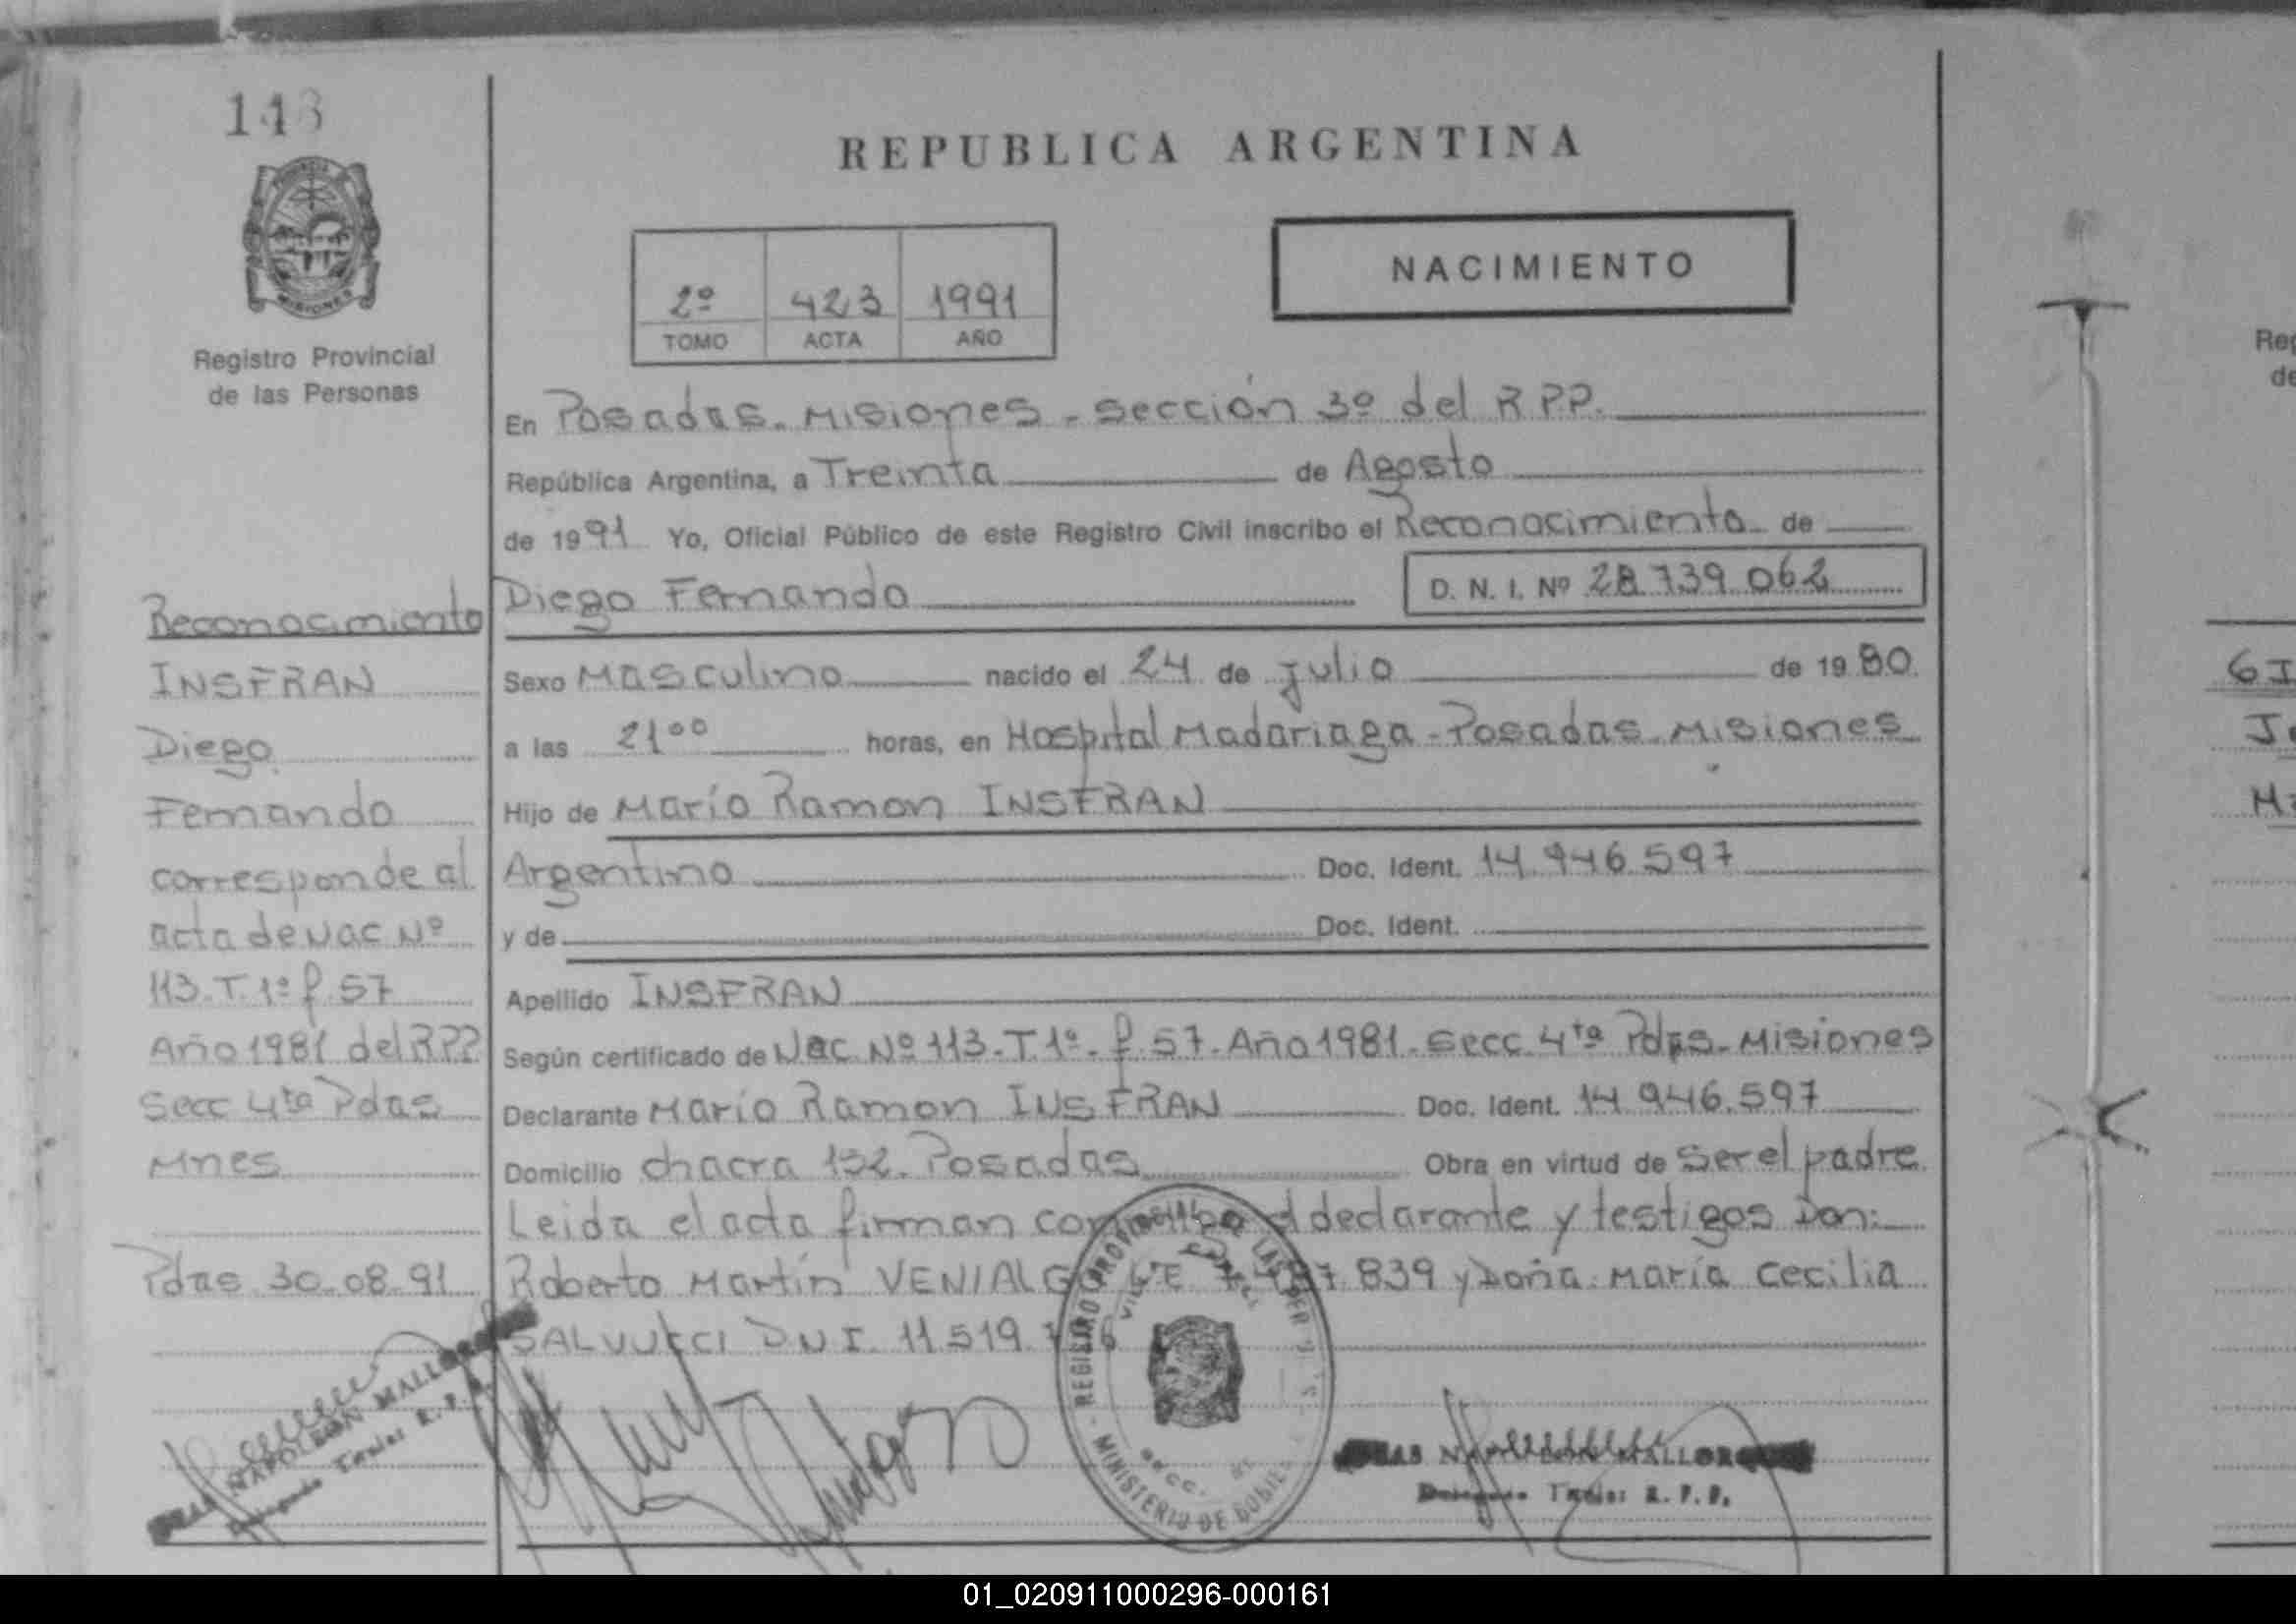 REPUBLICA ARGENTINA
MISIONES
Registro Provincial
de las Personas
2º 423 1991
TOMO ACTA AÑO
NACIMIENTO
En Posadas. Misiones - sección 3º del R.P.P.
República Argentina, a Treinta de Agosto
de 1991 Yo, Oficial Público de este Registro Civil inscribo el Reconocimiento de
Diego Fernando D. N. I. Nº 28.739.062
Sexo Masculino nacido el 24 de Julio de 1980
a las 21 00 horas, en Hospital Madariaga - Posadas. Misiones
Hijo de Mario Ramon INSFRAN
Argentino Doc. Ident. 14.946.597
y de Doc. Ident.
Apellido INSFRAN
Según certificado de Nac Nº 113-T.1º- f 57-Año 1981-Secc 4ta Pdas-Misiones
Declarante Mario Ramon INSFRAN Doc. Ident. 14.946.597
Domicilio chacra 132. Posadas Obra en virtud de Ser el padre
Leida el acta firman declarante y testigos Don:
Roberto Martín 839 y Doña María Cecilia
SALVUCCI DNI. 11.519.
Reconocimiento
INSFRAN
Diego
Fernando
corresponde al
acta de Nac Nº
113-T.1º f 57
Año 1981 del RPP
Secc 4ta Pdas
Mnes
Pdas 30.08.91
NAPOLEON MALLOR
Titular R. P. P.
MINISTERIO DE
MALLOR
Titular R. P. P.
01_020911000296-000161